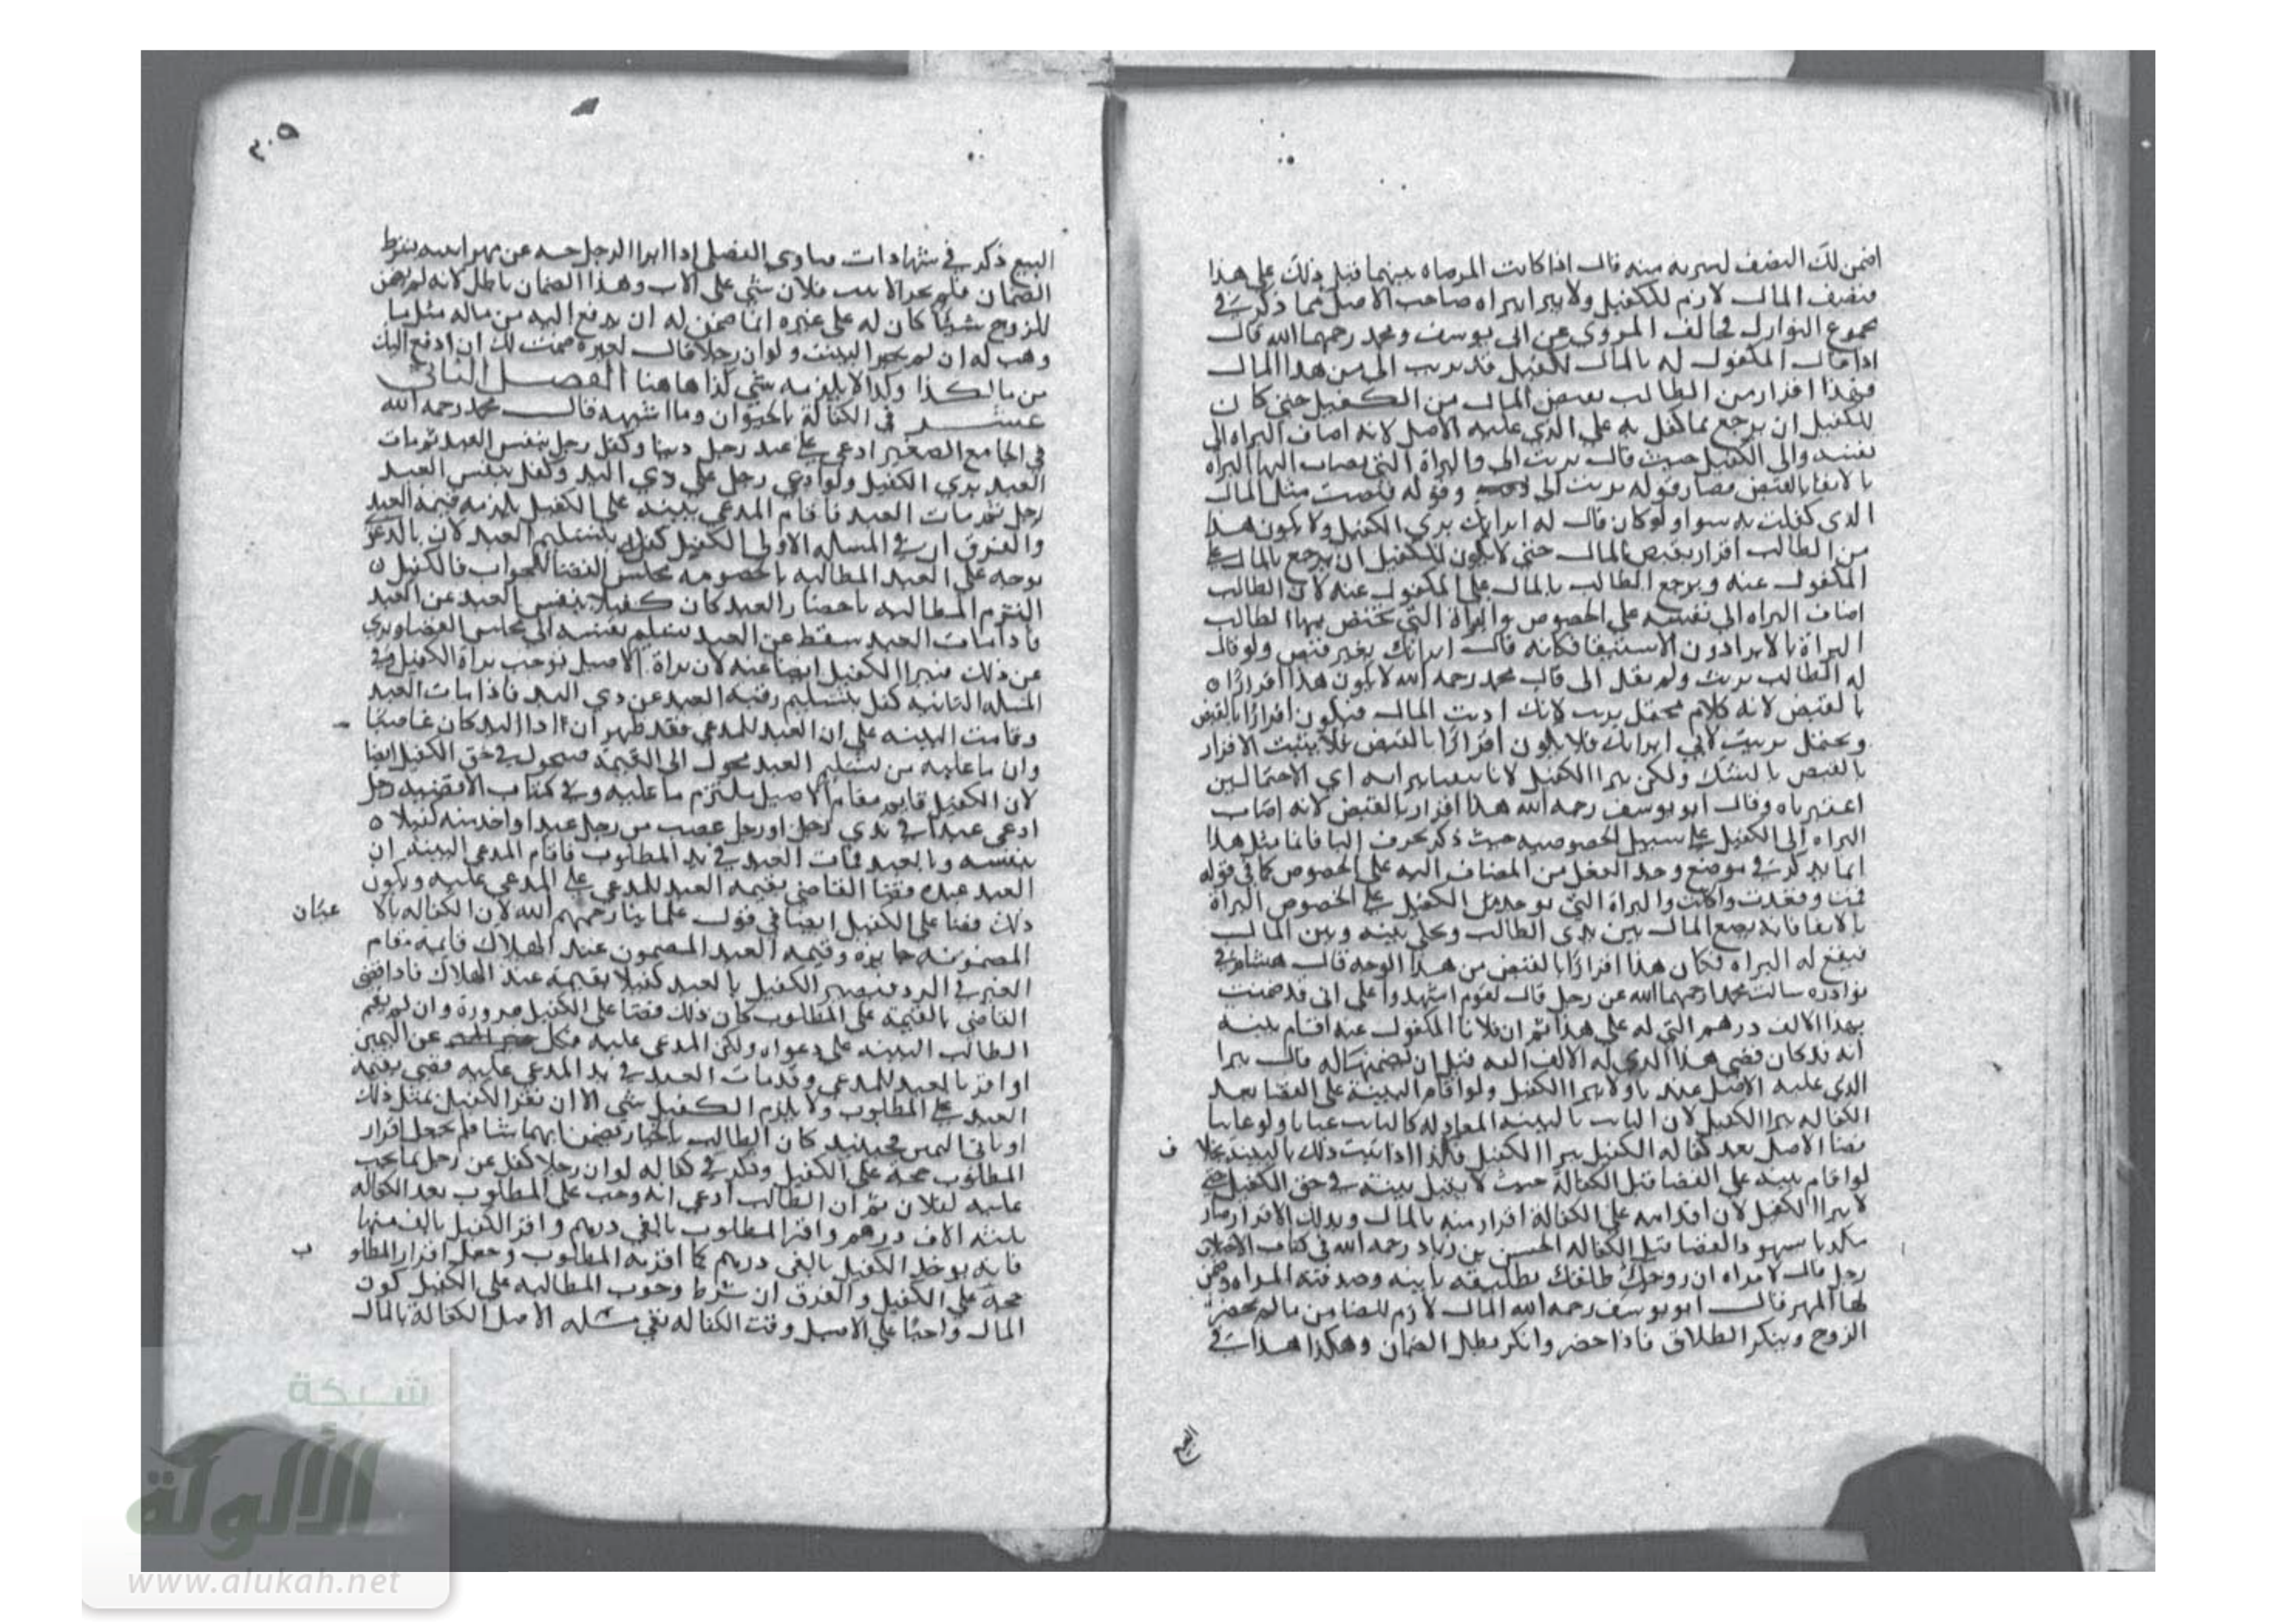 اضمن لك النصف لسربه منه قال اذا كانت المرضاه بينهما قبل ذلك على هذا
فنصف المال لازم للكفيل ولا يبرا ببراه صاحب الاصل مما ذكر في
مجموع النوازل مخالف المروي عن ابي يوسف ومحمد رحمهما الله قال
اذا قال المكفول له بالمال للكفيل قد بريت الي من هذا المال
فهذا اقرار من الطالب بقبض المال من الكفيل حتى كان
للكفيل ان يرجع بما كفل به على الذي عليه الاصل لانه اضاف البراه الى
نفسه والى الكفيل حيث قال بريت الي والبراة التي يضاف اليها البراه
بالايفا بالقبض فصار قوله بريت الي وقوله قبضت مثل المال
الذي كفلت به سوا ولو كان قال له ابراتك بري الكفيل ولا يكون هذا
من الطالب اقرار بقبض المال حتى لا يكون للكفيل ان يرجع بالمال على
المكفول عنه ويرجع الطالب بالمال على المكفول عنه لان الطالب
اضاف البراه الى نفسه على الخصوص والبراة التي تختص بها الطالب
البراة بالابرا دون الاستيفا فكانه قال ابراتك بغير قبض ولو قال
له الطالب بريت ولم يقل الي قال محمد رحمه الله لا يكون هذا اقرارا
بالقبض لانه كلام محتمل بريت لانك اديت المال فيكون اقرارا بالقبض
ويحتمل بريت لاني ابراتك فلا يكون اقرارا بالقبض فلا يثبت الاقرار
بالقبض بالشك ولكن يبرا الكفيل لانا تيقنا ببراته اي الاحتمالين
اعتبرناه وقال ابو يوسف رحمه الله هذا اقرار بالقبض لانه اضاف
البراه الى الكفيل على سبيل الخصوصيه حيث ذكر بحرف التا فانما مثل هذا
انما يذكر في موضع وجد الفعل من المضاف اليه على الخصوص كما في قوله
قمت وقعدت واكلت والبراة التي توجد من الكفيل على الخصوص البراة
بالايفا فانه يضع المال بين يدي الطالب ويخلي بينه وبين المال
فيقع له البراه فكان هذا اقرارا بالقبض من هذا الوجه قال هشام في
نوادره سالت محمدا رحمهما الله عن رجل قال لقوم اشهدوا على اني قد ضمنت
بهذا الالف درهم التي له على هذا ثم ان فلانا المكفول عنه اقام بينه
انه قد كان قضى هذا الذي له الالف الفه قبل ان يضمنها له قال يبرا
الذي عليه الاصل عنه ولا يبرا الكفيل ولو اقام البينة على القضا بعد
الكفاله يبرا الكفيل لان الثابت بالبينه العادله كالثابت عيانا ولو عاينا
قضا الاصل بعد كفاله الكفيل يبرا الكفيل فكذا اذا ثبت ذلك بالبينة بخلا ف
لو اقام بينه على القضا قبل الكفالة حيث لا يقبل بينته في حق الكفيل حتى
لا يبرا الكفيل لان اقدامه على الكفالة اقرار منه بالمال وبذلك الاقرار صار
مكذبا شهود القضا قبل الكفاله الحسن بن زياد رحمه الله في كتاب الاختلاف
رجل قال لامراه ان زوجك طلقك تطليقه باينه وصدقته المراه وضمن
لها المهر قال ابو يوسف رحمه الله المال لازم للضامن ما لم يحضر
الزوج وينكر الطلاق فاذا حضر وانكر بطل الضمان وهكذا هذا في
البيع
٣٠٥
البيع ذكر في شهادات فتاوى الفضلي اذا ابرا الرجل ختنه عن مهر ابنته بشرط
الضمان فلم يجز الابنت فلان شي على الاب وهذا الضمان باطل لانه لم يضمن
للزوج شيئا كان له على غيره انما ضمن له ان يدفع اليه من ماله مثل ما
وهب له ان لم يجز البنت ولو ان رجلا قال لغيره ضمنت لك ان ادفع اليك
من مالي كذا وكذا لا يلزمه شي كذا هاهنا الفصل الثاني
عشر في الكفالة بالحيوان وما اشبهه قال محمد رحمه الله
في الجامع الصغير ادعى على عبد رجل دينا وكفل رجل بنفس العبد ثم مات
العبد بري الكفيل ولو ادعى رجل على ذي اليد وكفل بنفس العبد
رجل ثم مات العبد فاقام المدعي بينه على الكفيل يلزمه قيمة العبد
والفرق ان في المسله الاولى الكفيل كفل بتسليم العبد لان بالدعوى
توجه على العبد المطالبه بالخصومه مجلس القضا للجواب فالكفيل
التزم المطالبه باحضار العبد كان كفيلا بنفس العبد عن العبد
فاذا مات العبد سقط عن العبد تسليم نفسه الى مجلس القضا وبري
عن ذلك فيبرا الكفيل ايضا عنه لان براة الاصيل توجب براة الكفيل وفي
المسله الثانيه كفل بتسليم رقبة العبد عن ذي اليد فاذا مات العبد
وقامت البينه على ان العبد للمدعي فقد ظهر ان ذا اليد كان غاصبا
وان ما عليه من تسليم العبد تحول الى القيمة فيتحول في حق الكفيل ايضا
لان الكفيل قايم مقام الاصيل ملتزم ما عليه وفي كتاب الاقضيه رجل
ادعى عبدا في يدي رجل او رجل غصب من رجل عبدا واخذ منه كفيلا
بنفسه وبالعبد فمات العبد في يد المطلوب فاقام المدعي البينة ان
العبد عبده فقضا القاضي بقيمه العبد للمدعي على المدعي عليه ويكون
ذلك قضا على الكفيل ايضا في قول علماينا رحمهم الله لان الكفاله بالا عيان
المضمونه جايزه وقيمه العبد المضمون عند الهلاك قايمه مقام
العين في الرد فيصير الكفيل بالعبد كفيلا بقيمته عند الهلاك فاذا قضى
القاضي بالقيمة على المطلوب كان ذلك قضا على الكفيل ضرورة وان لم يقم
الطالب البينه على دعواه ولكن المدعى عليه نكل عن اليمين
او اقر بالعبد للمدعي وقد مات العبد في يد المدعى عليه قضى بقيمة
العبد على المطلوب ولا يلزم الكفيل شي الا ان يقر الكفيل بمثل ذلك
او ياتى اليمين فحينئذ كان الطالب بالخيار يضمن ايهما شا فلم يجعل اقرار
المطلوب حجة على الكفيل وذكر في كفاله لو ان رجلا كفل عن رجل بما يجب
عليه لفلان ثم ان الطالب ادعى انه وجب على المطلوب بعد الكفاله
ثلثه الاف درهم واقر المطلوب بالفي درهم واقر الكفيل بالف منها
فانه يوخذ الكفيل بالفي درهم كما اقر به المطلوب وجعل اقرار المطلو ب
حجة على الكفيل والفرق ان شرط وجوب المطالبه على الكفيل كون
المال واجبا على الاصيل وقت الكفاله ففي مسله الاصل الكفالة بالمال
شبكة
الألوكة
www.alukah.net